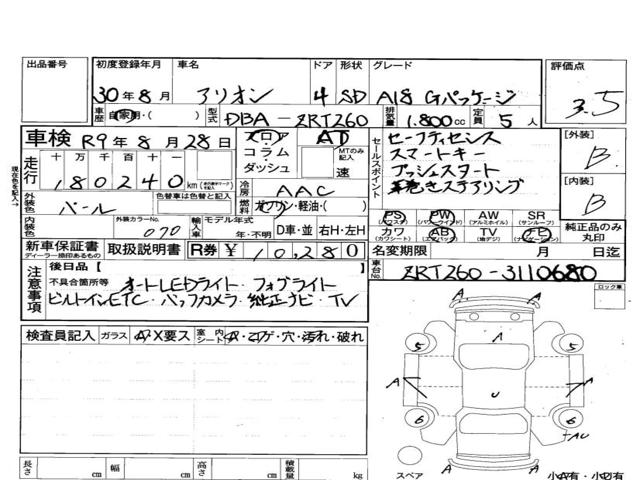 出品番号 初度登録年月 車名 ドア 形状 グレード 評価点
30年8月 アリオン 4 SD A18 Gパッケージ 3.5
車歴 自家用・( ) 型式 DBA-ZRT260 排気量 1.800cc 定員 5人
車検 R9年8月28日 フロア AT セールスポイント セーフティセンス 【外装】
走行 十万千百十一 コラム・ MTのみ記入 スマートキー B
180240 km ダッシュ 速 プッシュスタート 【内装】
冷房 AAC 革巻きステアリング B
外装色 パール 色替車は色替と記入 燃料 ガソリン・軽油・( )
PS PW AW SR 純正品のみ丸印
(パワステ) (パワーウインド) (アルミホイル) (サンルーフ)
内装色 外装カラーNo. 070 輸入車 モデル年式 年・不明 D車・並 右H・左H
カワ AB TV
(カワシート) (エアバック) (地デジ) (ナビゲーション)
新車保証書 取扱説明書 R券 ¥10,280 名変期限 月 日迄
ディーラー捺印あるもの
注意事項 後日品【 】 車台No. ZRT260-3110680
不具合箇所等 オートLEDライト・フォグライト
ビルトインETC・バックカメラ・純正ナビ・TV
ロック車
検査員記入 ガラス A・X要ス 室内シート A・コゲ・穴・汚れ・破れ
A
5 A 5
A U A
6 6
AU
A
長さ cm 幅 cm 高さ cm 積載量 kg スペア 小A有・小U有
現在色を記入→